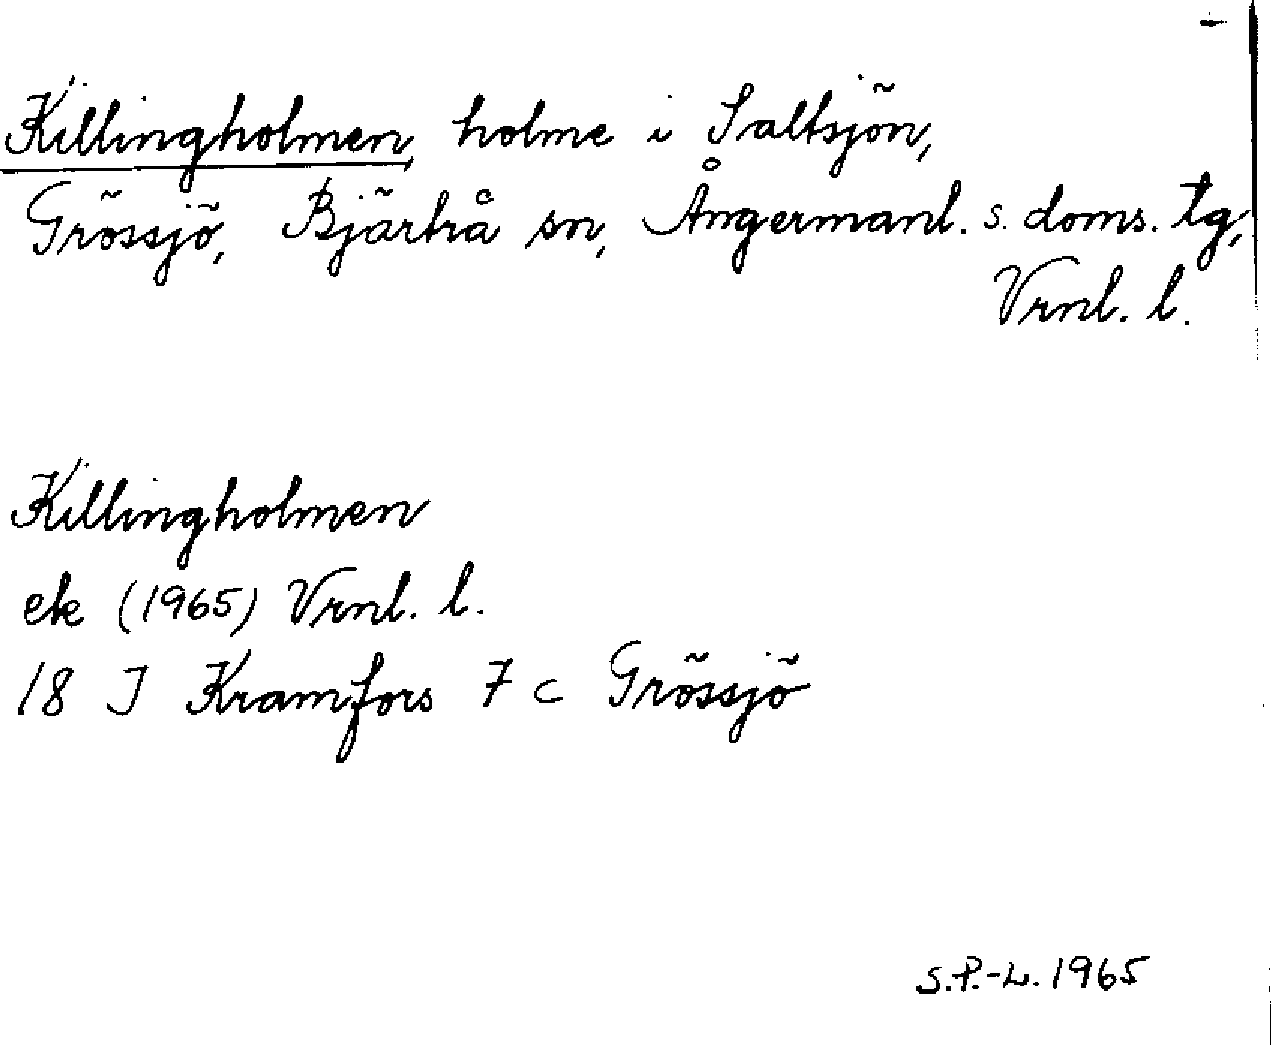 Killingholmen, holme i Saltsjön,
Grössjö, Bjärtrå sn, Ångermanl. s. doms. tg,
Vrnl. l.
Killingholmen
ek (1965) Vrnl. l.
18 J Kramfors 7 c Grössjö
S.P.-L. 1965